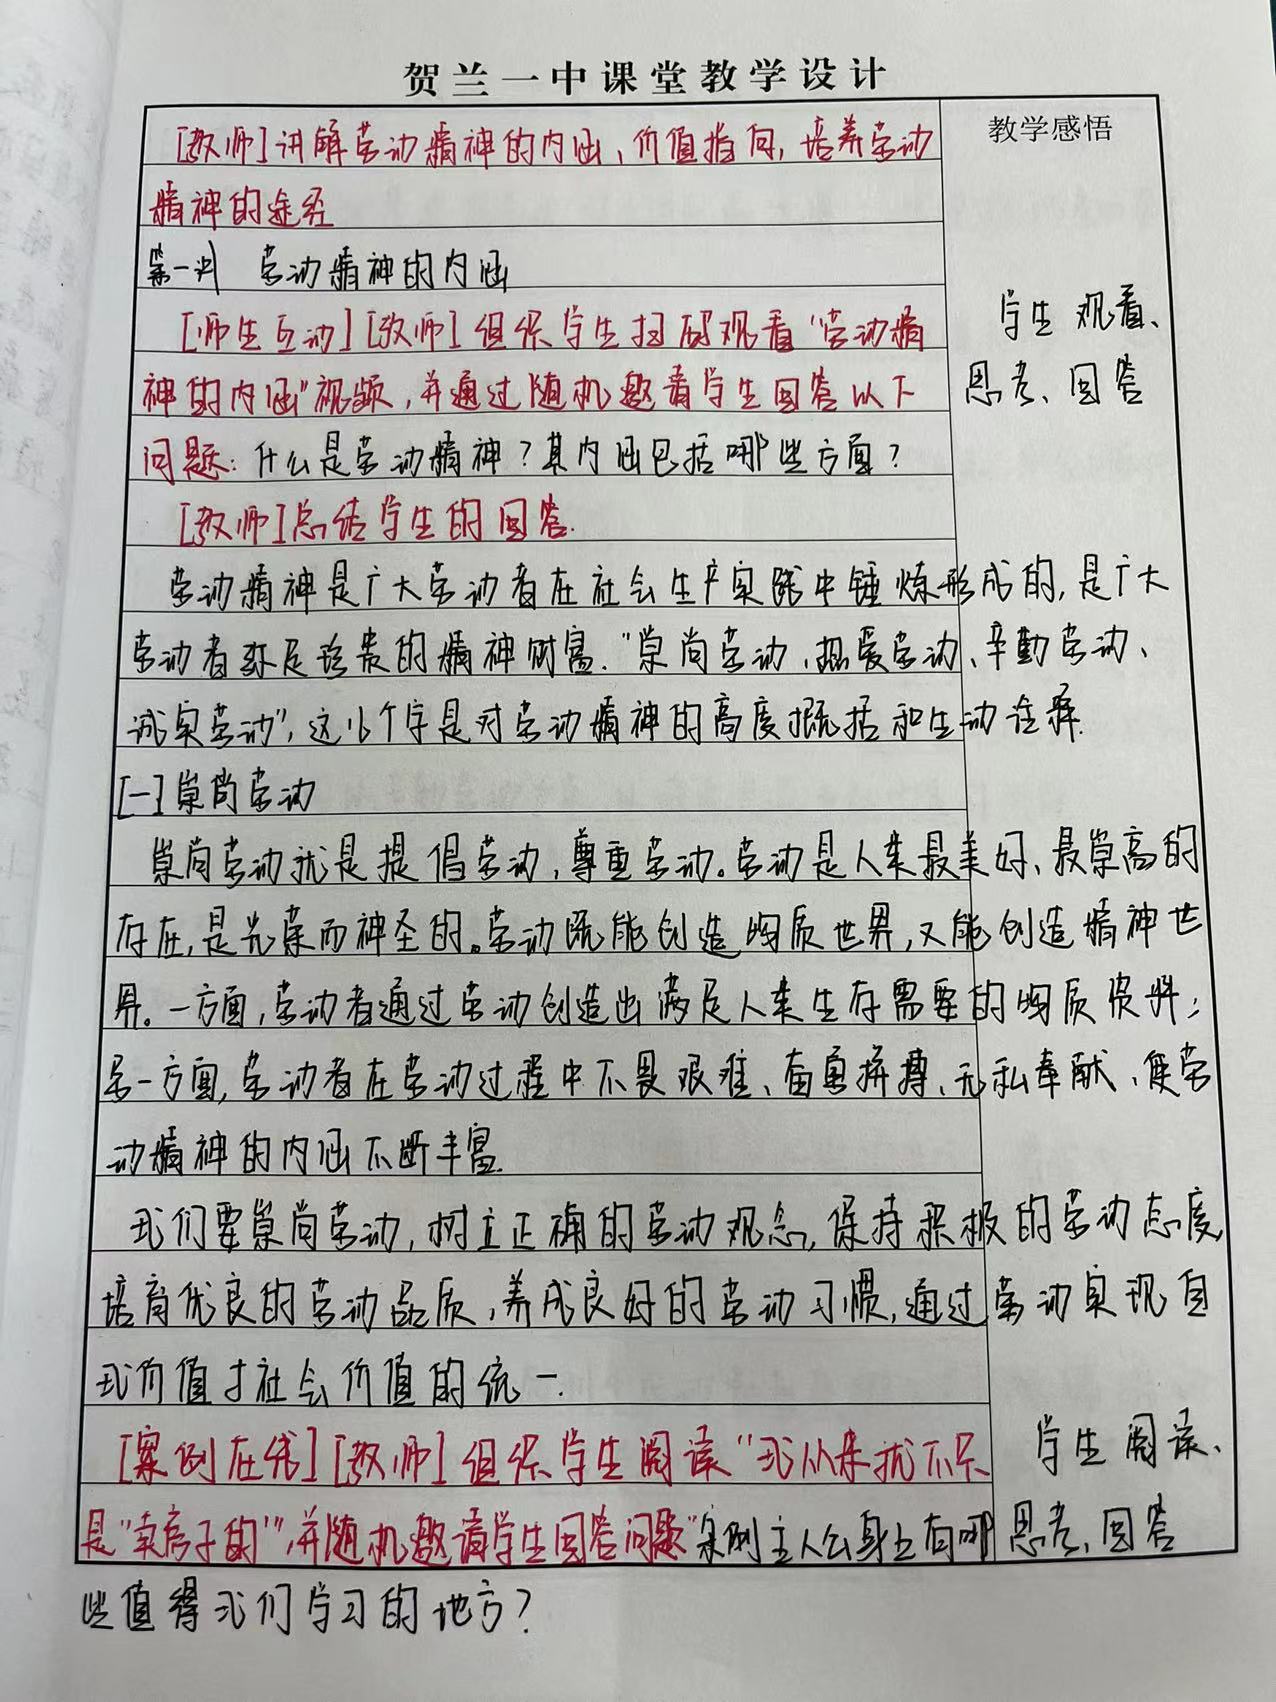 贺兰一中课堂教学设计
教学感悟
[教师]讲解劳动精神的内涵、价值指向,培养劳动
精神的途径
第一课 劳动精神的内涵
[师生互动][教师]组织学生扫码观看“劳动精
神的内涵”视频,并通过随机邀请学生回答以下
问题:什么是劳动精神?其内涵包括哪些方面?
学生观看、
思考、回答
[教师]总结学生的回答.
劳动精神是广大劳动者在社会生产实践中锤炼形成的,是广大
劳动者弥足珍贵的精神财富.“崇尚劳动、热爱劳动、辛勤劳动、
诚实劳动”,这16个字是对劳动精神的高度概括和生动诠释.
[一]崇尚劳动
崇尚劳动就是提倡劳动,尊重劳动。劳动是人类最美好、最崇高的
存在,是光荣而神圣的。劳动既能创造物质世界,又能创造精神世
界。一方面,劳动者通过劳动创造出满足人类生存需要的物质资料;
另一方面,劳动者在劳动过程中不畏艰难、奋勇拼搏、无私奉献、使劳
动精神的内涵不断丰富.
我们要崇尚劳动,树立正确的劳动观念,保持积极的劳动态度,
培育优良的劳动品质,养成良好的劳动习惯,通过劳动实现自
我价值于社会价值的统一.
[案例在线][教师]组织学生阅读“我从来就不只
是“卖房子的””,并随机邀请学生回答问题“案例主人公身上有哪
些值得我们学习的地方?
学生阅读、
思考、回答